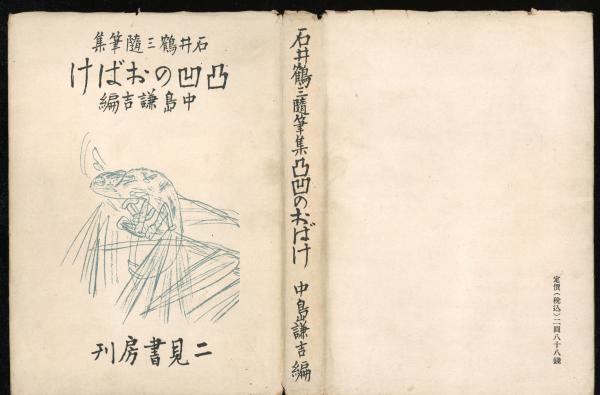 石井鶴三隨筆集
凸凹のおばけ
中島謙吉編
二見書房刊
石井鶴三隨筆集 凸凹のおばけ 中島謙吉編
定價(税込)二圓八十八錢